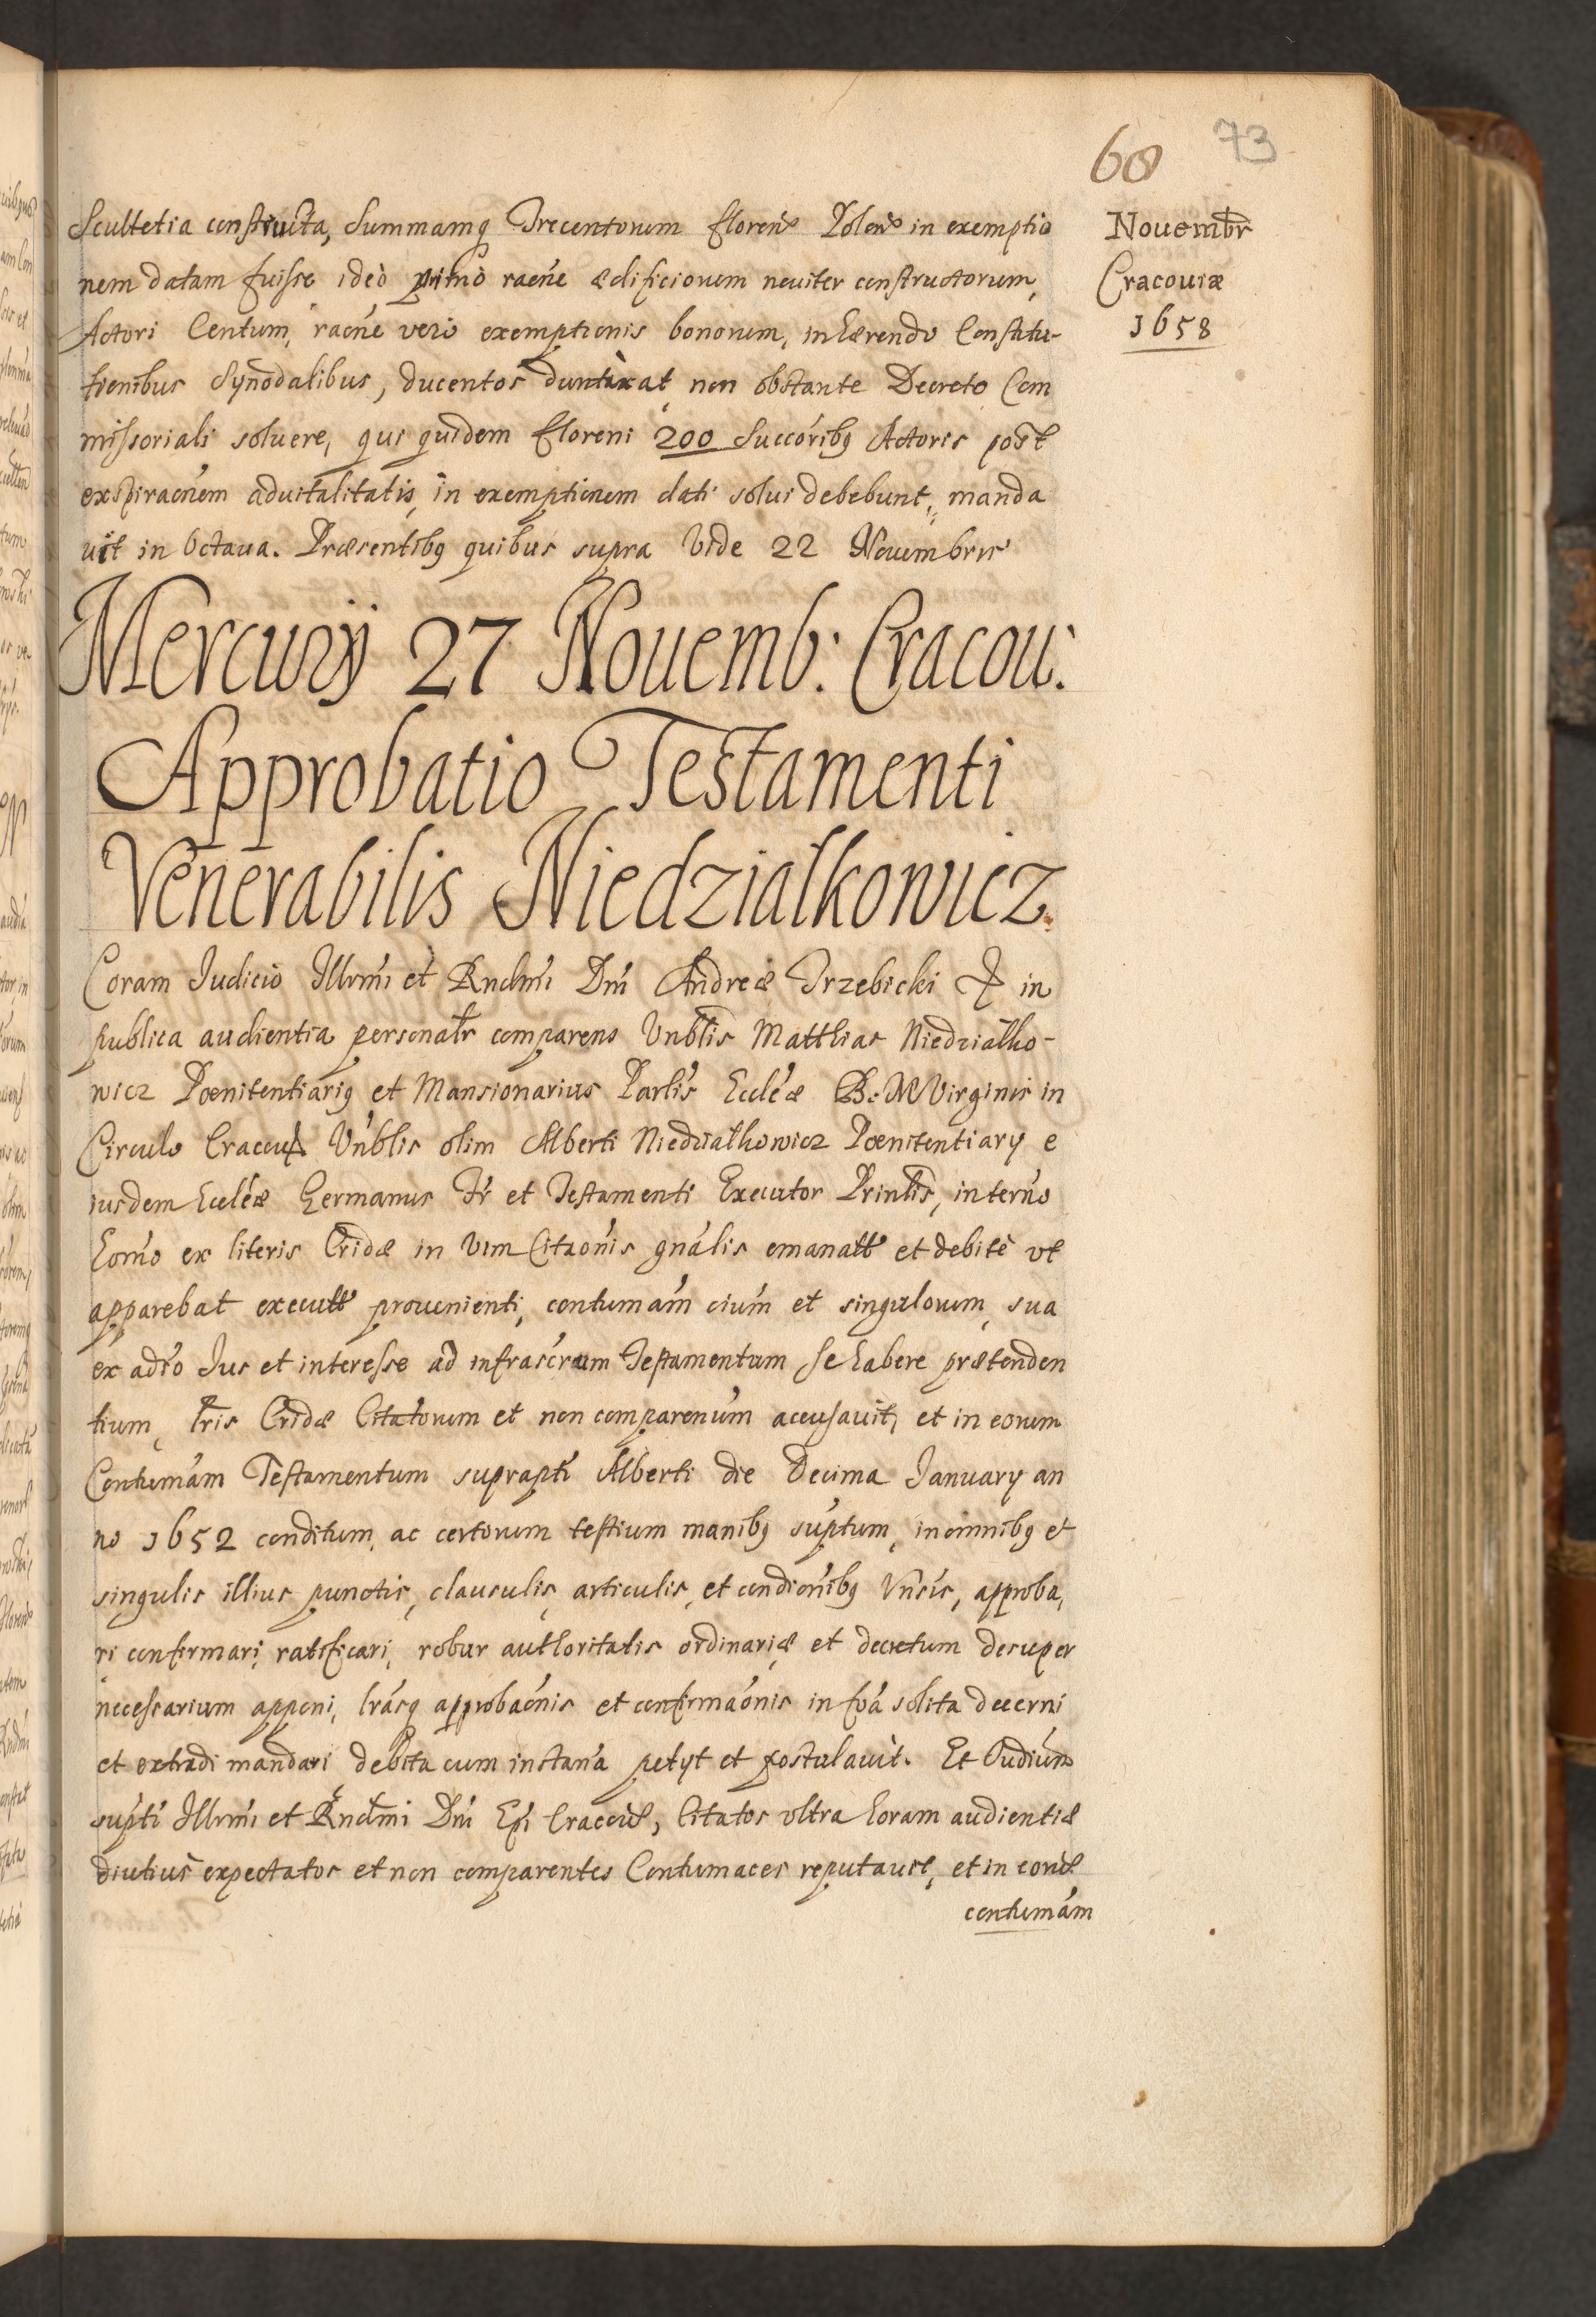 68 73
Nouembr̃
Cracouiæ
1658
Scultetia constructa, Summamq Trecentorum floren Polon in exemptio
nem datam fuisse ideò primò raoñe ædificiorum neuiter constructorum,
Actori Centum, raoñe verò exemptionis bonorum, inhærendo Constitu-
tionibus Synodalibus, ducentos duntaxat, non obstante Decreto Com
missoriali soluere, qui quidem floreni 200 Succoribq Actoris post
exspiraoñem aduitalitatis, in exemptionem dati solui debebunt, manda
uit in Octaua. Præsentibq quibus supra Vide 22 Nouembris
Mercurÿ 27 Nouemb: Cracou:
Approbatio Testamenti
Venerabilis Niedziałkowicz.
Coram Judicio Illrmi et Rndmi Dni Andreæ Trzebicki & in
publica audientia personałr comparens Vnblis Matthias Niedziałko-
wicz Pœnitentiariq et Mansionarius Parlis Eccleæ B. M Virginis in
Circulo Cracou Vnblis olim Alberti Niedziałkowicz Pœnitentiary e
iusdem Eccleæ Germanus Fr et Testamenti Executor Prinlis, in terno
hormo ex literis Cridæ in vim Citaonis gnalis emanatt et debitè vt
apparebat execut prouenienti, contumam oium et singulorum, sua
ex aduo Jus et interesse ad infrascrum Testamentum se habere prætenden
tium, lris Cridæ Citatorum et non comparenum accusauit, et in eorum
Contumam Testamentum suprapti Alberti die Decima January an
no 1652 conditum, ac certorum testium manibq suptum, in omnibq et
singulis illius punctis, clausulis, articulis, et condionibq Vnsis, approba,
ri confirmari, ratificari, robur authoritatis ordinariæ et decretum desuper
necessarium apponi, lrasq approbaonis et confirmaonis in foa solita decerni
et extradi mandari debita cum instana petyt et postulauit. Et Iudium
supti Illrmi et Rndmi Dni Epi Cracou, Citatos vltra horam audientiæ
diutius expectatos et non comparentes Contumaces reputauit, et in eorū
contumam